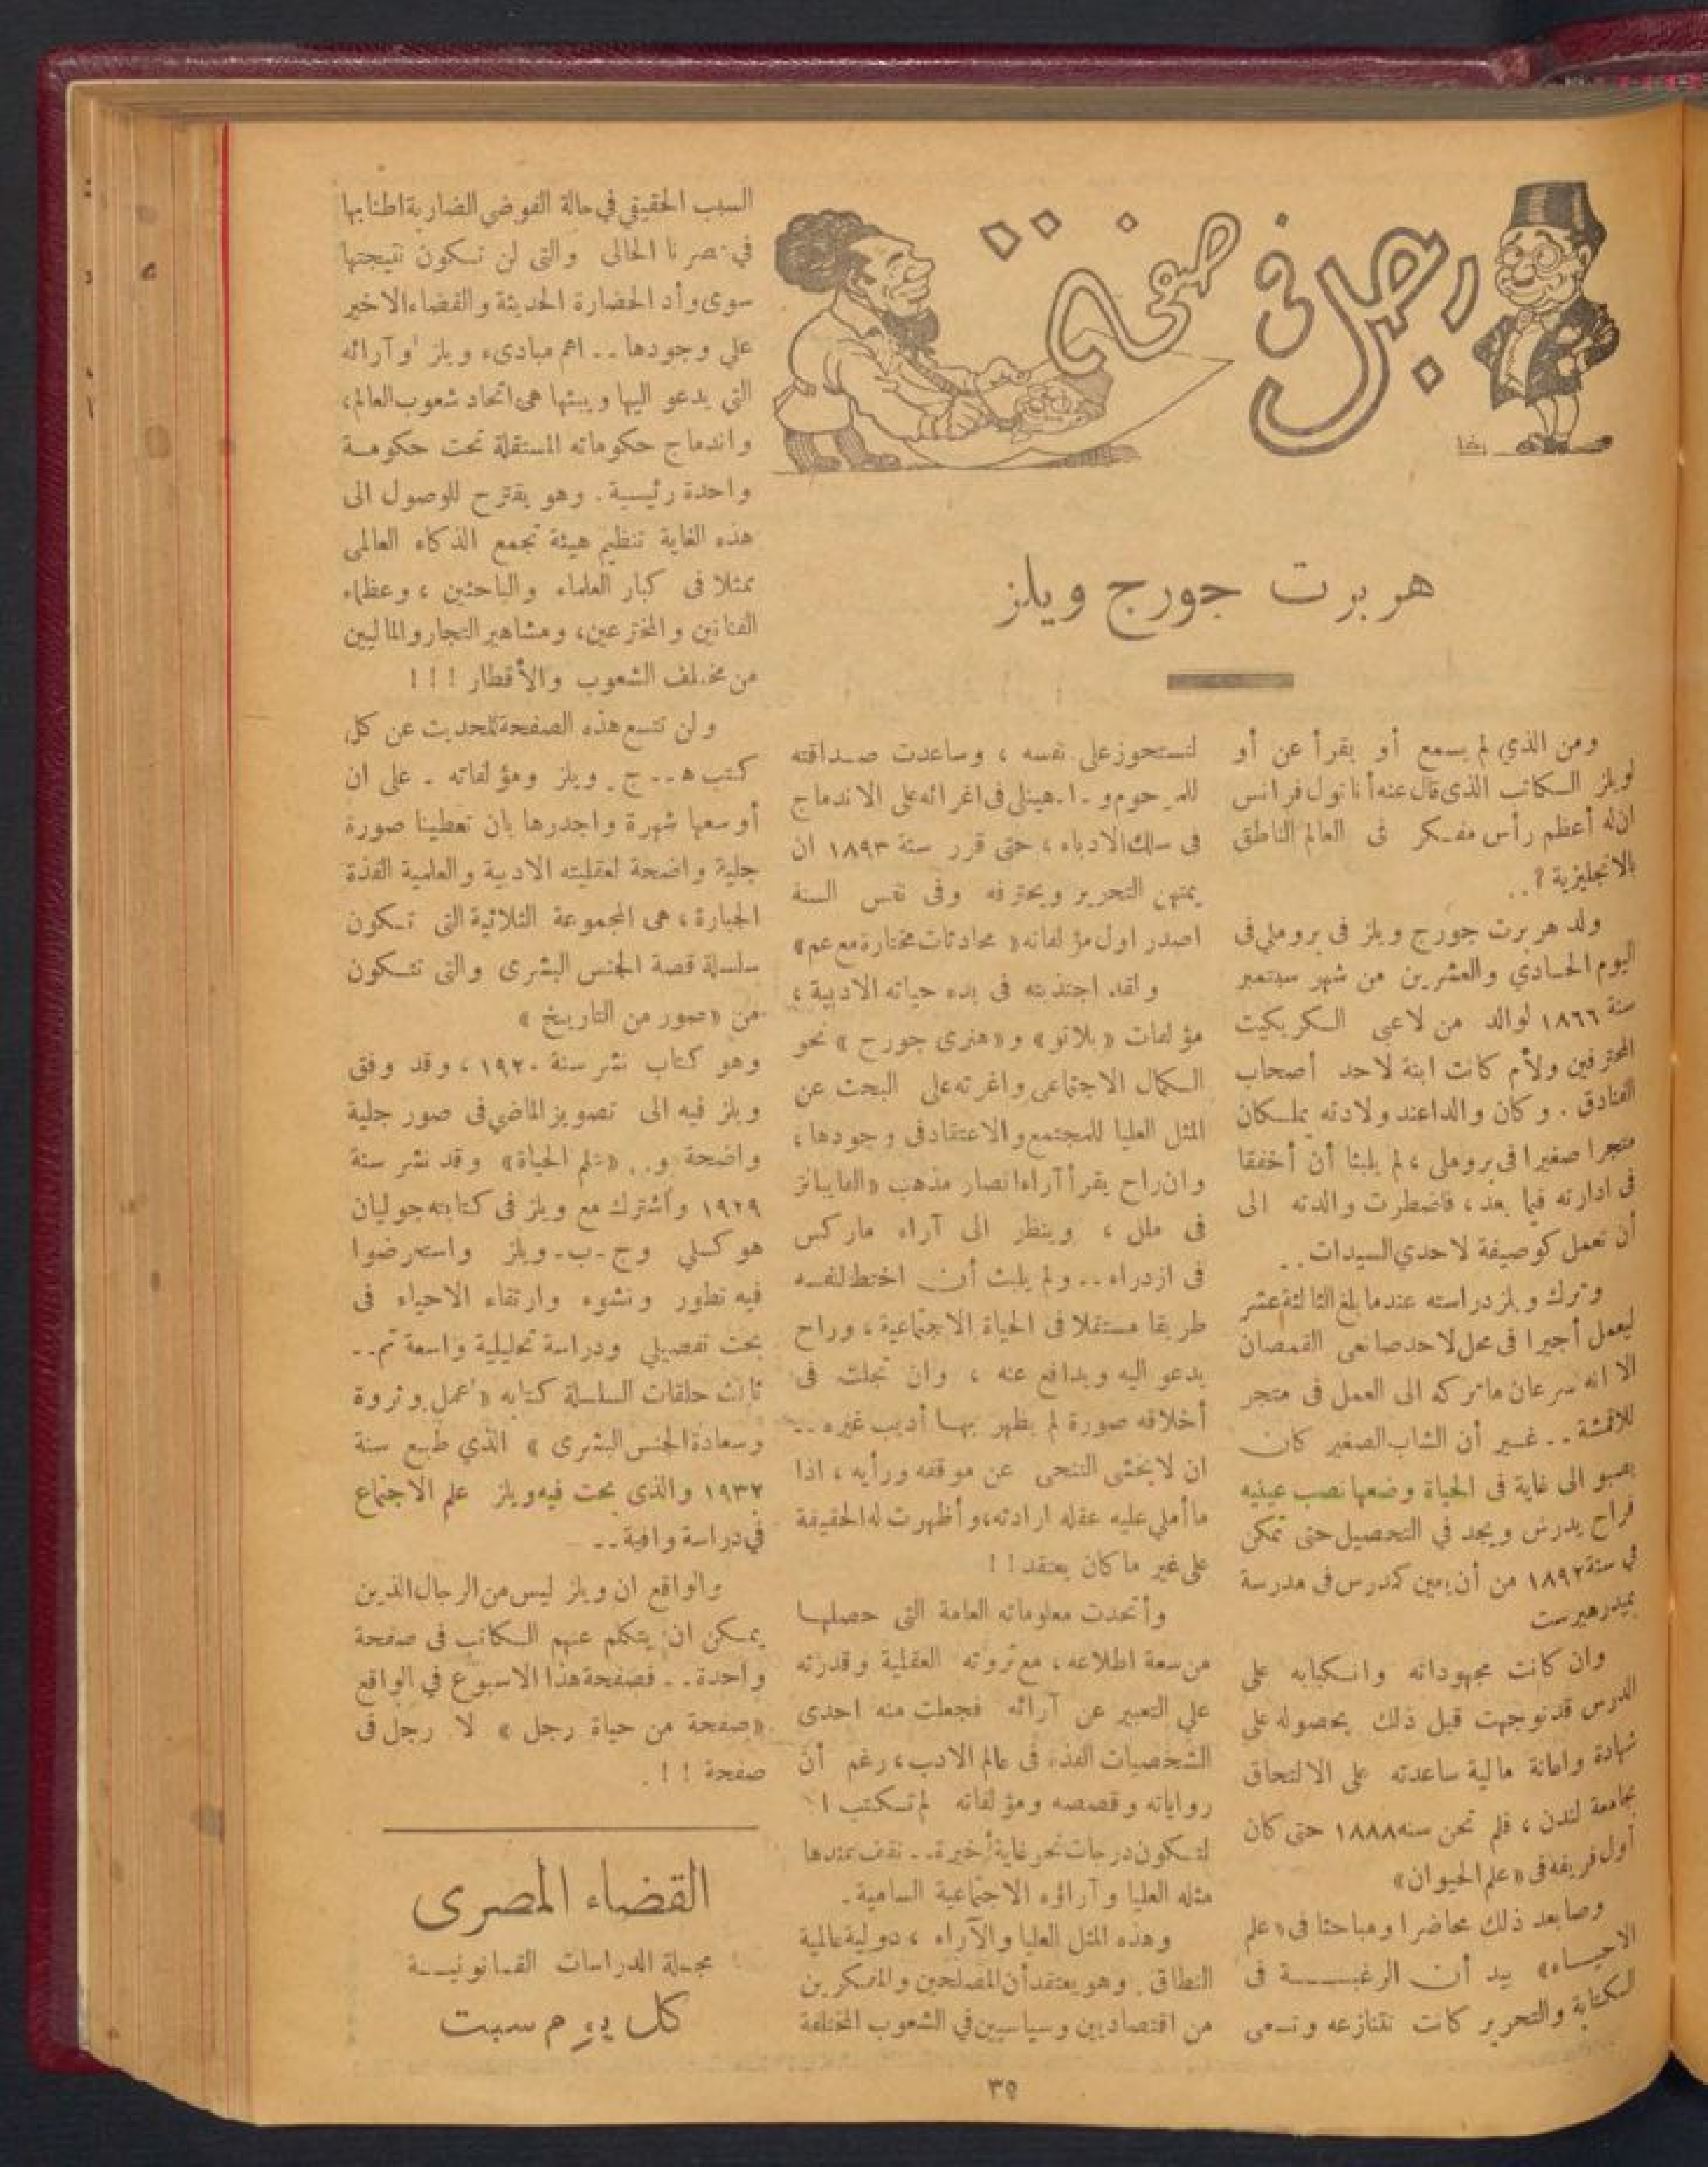 رجل في صفحة
رخا
هربرت جورج ويلز
ومن الذي لم يسمع أو يقرأ عن أو
لويلز الكاتب الذى قال عنه أناتول فرانس
انه أعظم رأس مفكر فى العالم الناطق
بالانجليزية ؟ . .
ولد هربرت جورج ويلز فى بروملى فى
اليوم الحادي والعشرين من شهر سبتمبر
سنة ١٨٦٦ لوالد من لاعبى الكريكيت
المحترفين ولأم كانت ابنة لاحد أصحاب
الفنادق . وكان والداعند ولادته يملكان
متجرا صغيرا فى بروملى ، لم يلبثا أن أخفقا
فى ادارته فيما بعد ، فاضطرت والدته الى
أن تعمل كوصيفة لاحدي السيدات . .
وترك ويلز دراسته عندما بلغ الثالثة عشر
ليعمل أجيرا فى محل لاحد صانعى القمصان
الا انه سرعان ماتركه الى العمل فى متجر
للاقمشة . . غير أن الشاب الصغير كان
يصبو الى غاية فى الحياة وضعها نصب عينيه
فراح يدرس ويجد في التحصيل حتى تمكن
في سنة ١٨٩٢ من أن يعين كمدرس فى مدرسة
بميدرهيرست
وان كانت مجهوداته وانكبابه على
الدرس قدتوجهت قبل ذلك بحصوله على
شهادة واعانة مالية ساعدته على الالتحاق
بجامعة لندن ، فلم تحن سنه ١٨٨٨ حتى كان
أول فريقه فى «علم الحيوان»
وصابعد ذلك محاضرا ومباحثا فى «علم
الاحياء» بيد أن الرغبة فى
الكتابة والتحرير كانت تتنازعه وتسعى
لتستحوز على نفسه ، وساعدت صداقته
للمرحوم و . ا . هينلى فى اغرائه على الاندماج
فى سلك الادباء ، حتى قرر سنة ١٨٩٣ ان
يمتهن التحرير ويحترفه وفى نفس السنة
اصدر اول مؤلفاته «محادثات مختارة مع عم»
ولقد اجتذبته فى بدء حياته الادبية ،
مؤلفات «بلاتو» و«هنرى جورج» نحو
الكمال الاجتماعى واغرته على البحث عن
المثل العليا للمجتمع والاعتقاد فى وجودها ،
وان راح يقرأ آراء انصار مذهب «الفابيانز
فى ملل ، وينظر الى آراء ماركس
فى ازدراء . . ولم يلبث أن اختط لنفسه
طريقا مستقلا فى الحياة الاجتماعية ، وراح
يدعو اليه ويدافع عنه ، وان تجلت فى
أخلاقه صورة لم يظهر بها أديب غيره . .
ان لايخشى التنحى عن موقفه ورأيه ، اذا
ماأملي عليه عقله ارادته ، وأظهرت له الحقيقة
على غير ماكان يعتقد ! !
وأتحدت معلوماته العامة التى حصلها
من سعة اطلاعه ، مع ثروته العقلية وقدرته
علي التعبير عن آرائه فجعلت منه احدى
الشخصيات الفذه فى عالم الادب ، رغم أن
رواياته وقصصه ومؤلفاته لم تكتب ا
لتكون درجات نحو غاية أخيرة . . تقف عندها
مثله العليا وآراؤه الاجتماعية السامية .
وهذه المثل العليا والآراء ، دولية عالمية
النطاق . وهو يعتقد أن المصلحين والمفكرين
من اقتصاديين وسياسيين في الشعوب المختلفة
السبب الحقيقي في حالة الفوضى الضاربة اطنابها
في عصرنا الحالى والتى لن تكون نتيجتها
سوى وأد الحضارة الحديثة والقضاء الاخير
على وجودها . . اهم مبادىء ويلز وآرائه
التي يدعو اليها ويبثها هى اتحاد شعوب العالم ،
واندماج حكوماته المستقلة تحت حكومة
واحدة رئيسية . وهو يقترح للوصول الى
هذه الغاية تنظيم هيئة تجمع الذكاء العالمى
ممثلا فى كبار العلماء والباحثين ، وعظماء
الفنانين والمخترعين ، ومشاهير التجار والماليين
من مختلف الشعوب والأقطار ! ! !
ولن تتسع هذه الصفحة للحديث عن كل
كتب هـ . ج . ويلز ومؤلفاته . على ان
أوسعها شهرة واجدرها بان تعطينا صورة
جلية واضحة لعقليته الادبية والعلمية الفذة
الجبارة ، هى المجموعة الثلاثية التى تكون
سلسلة قصة الجنس البشرى والتى تتكون
من «صور من التاريخ»
وهو كتاب نشر سنة ١٩٢٠ ، وقد وفق
ويلز فيه الى تصويز الماضي فى صور جلية
واضحة و . . «علم الحياة» وقد نشر سنة
١٩٢٩ وأشترك مع ويلز فى كتابته جوليان
هوكسلي وج . ب . ويلز واستعرضوا
فيه تطور ونشوء وارتقاء الاحياء فى
بحث تفصيلي ودراسة تحليلية واسعة ثم . .
ثالث حلقات السلسلة كتابه «عمل وثروة
وسعادة الجنس البشرى» الذي طبع سنة
١٩٣٢ والذى بحث فيه ويلز علم الاجتماع
في دراسة وافية . .
والواقع ان ويلز ليس من الرجال الذين
يمكن ان يتكلم عنهم الكاتب فى صفحة
واحدة . . فصفحة هذا الاسبوع في الواقع
«صفحة من حياة رجل» لا رجل فى
صفحة ! ! .
القضاء المصرى
مجلة الدراسات القانونية
كل يوم سبت
٣٥